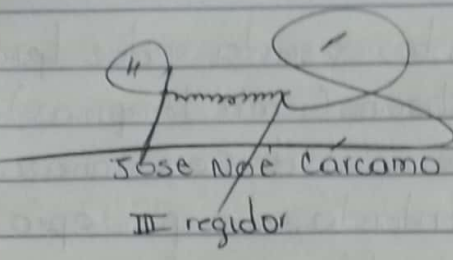 Jose Noé Cárcamo
III regidor